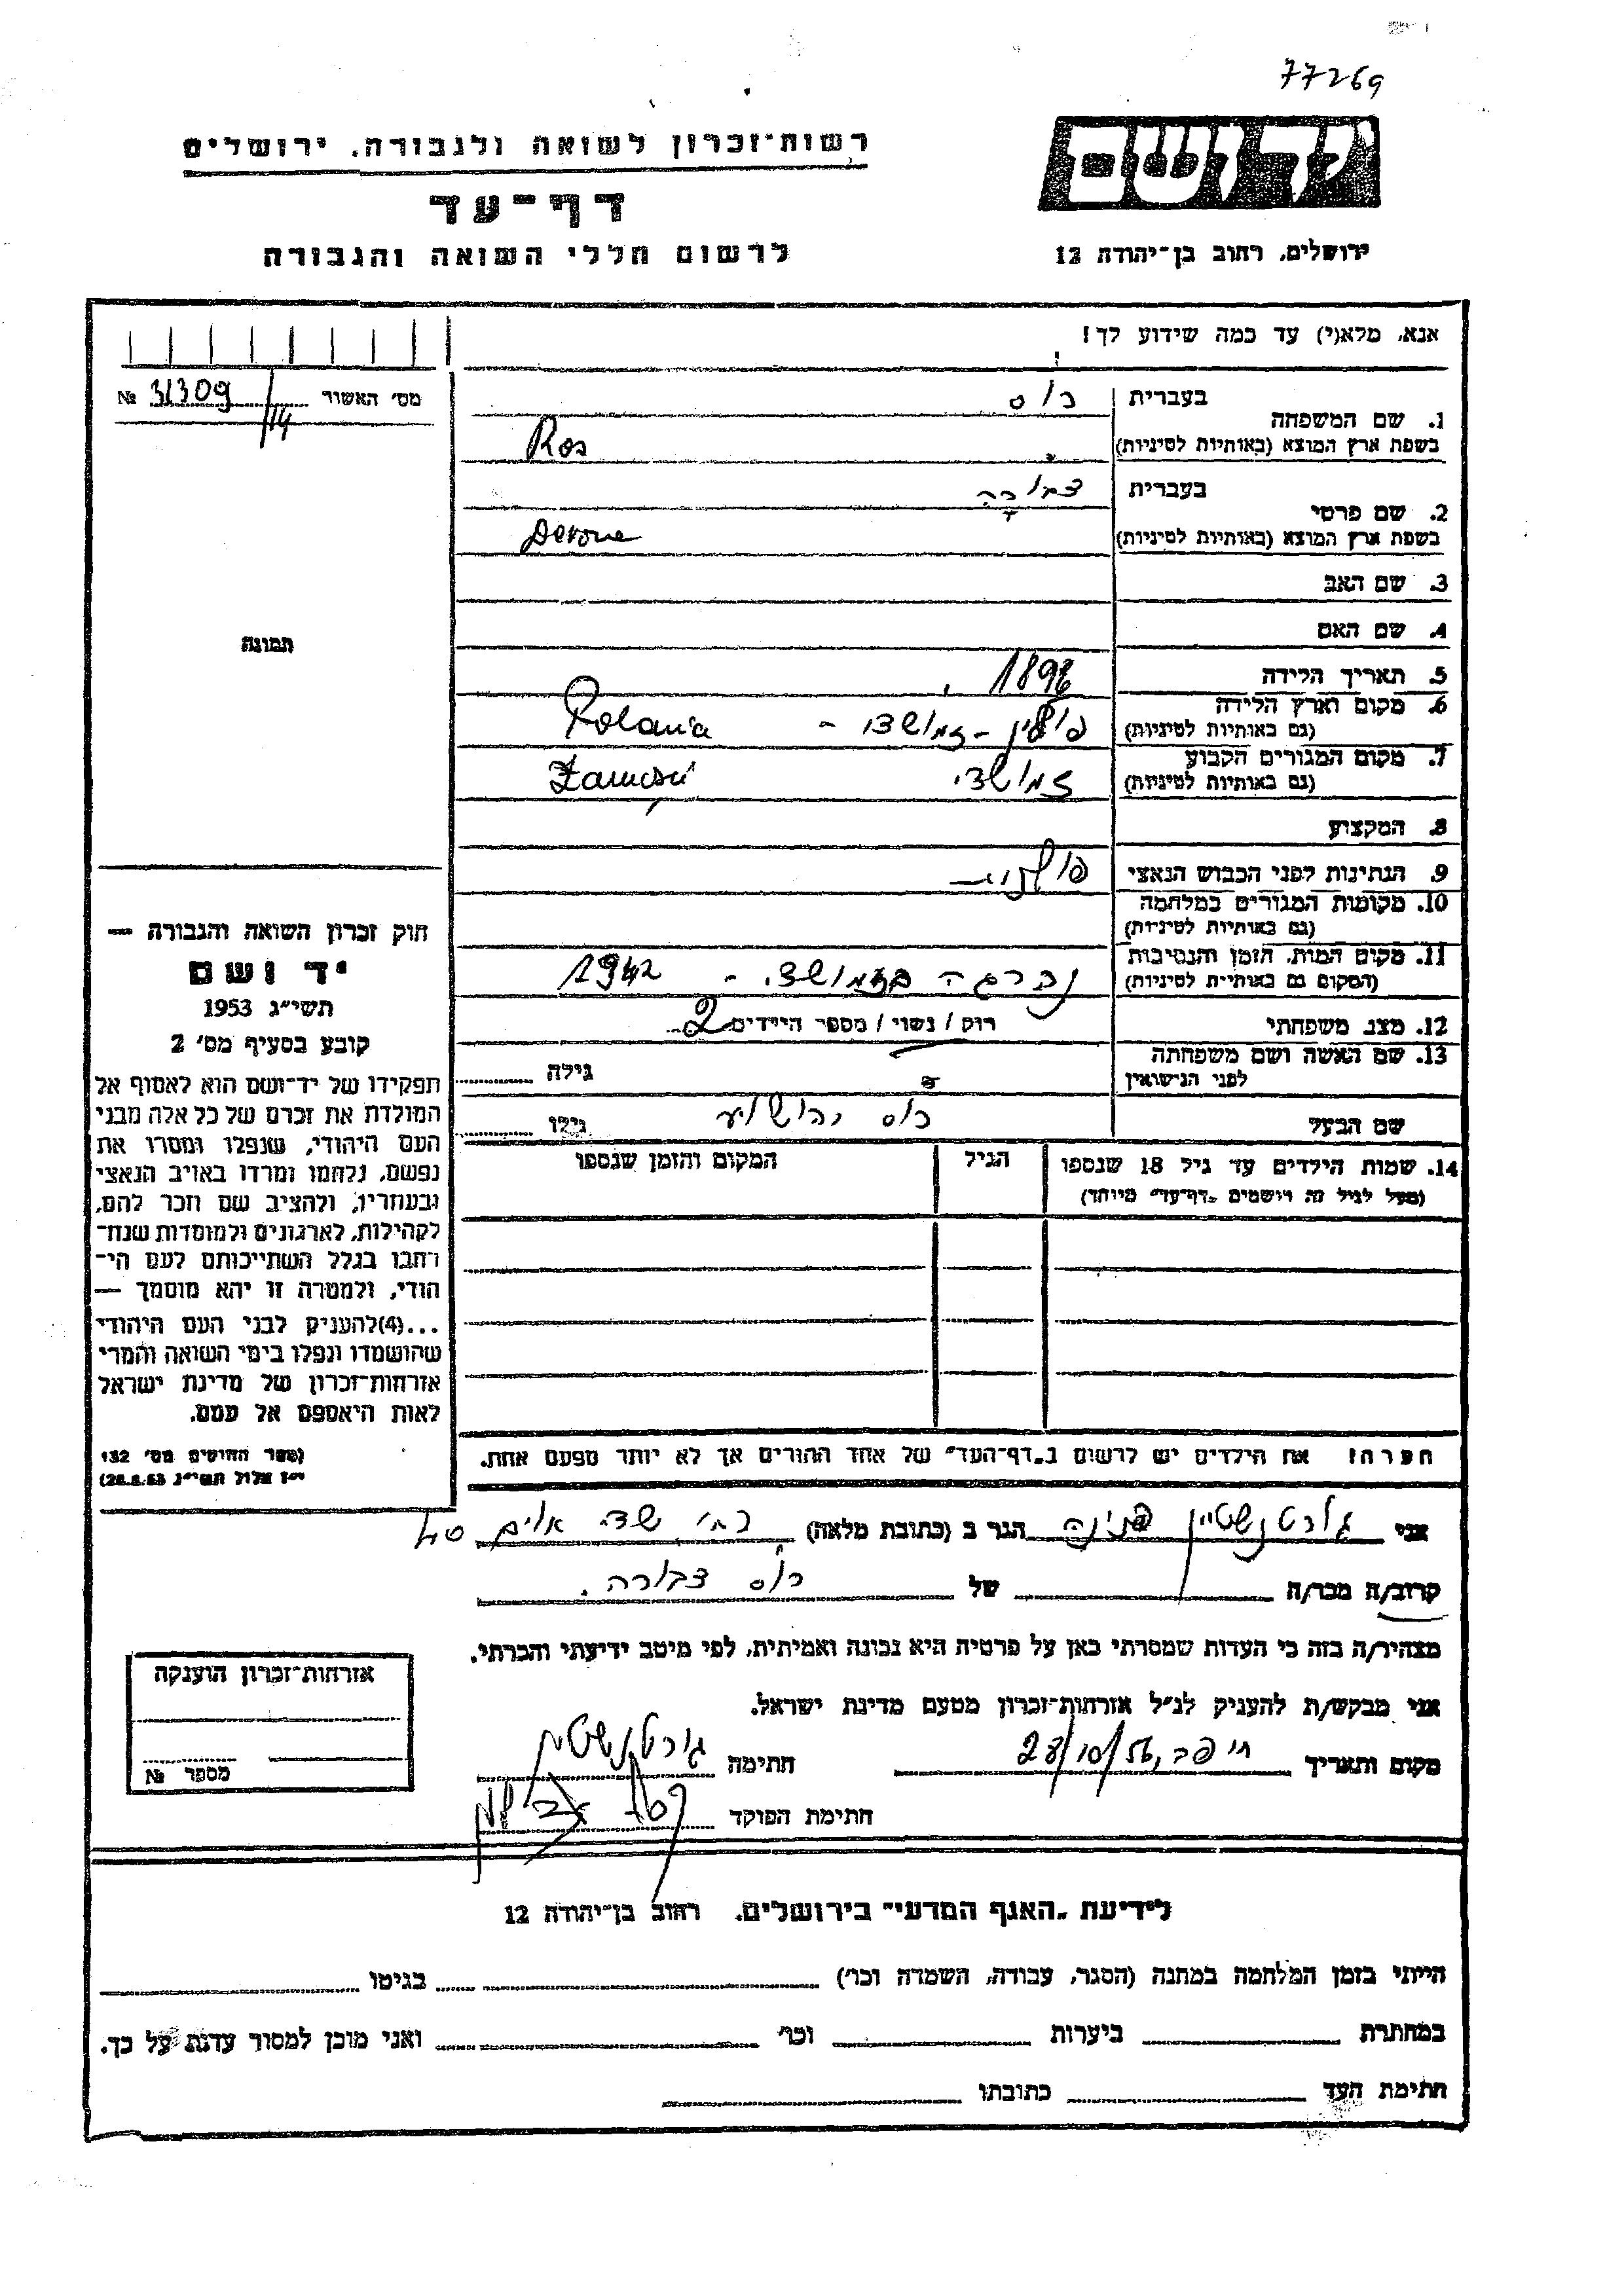 77269
יד ושם
רשות־זכרון לשואה ולגבורה, ירושלים
דף־עד
ירושלים, רחוב בן־יהודה 12
לרשום חללי השואה והגבורה
אנא, מלא(י) עד כמה שידוע לך!
מס׳ האשור 31309/14 №
1. שם המשפחה
בעברית רוס
בשפת ארץ המוצא (באותיות לטיניות) Ros
2. שם פרטי
בעברית דבורה
בשפת ארץ המוצא (באותיות לטיניות)
3. שם האב
4. שם האם
תמונה
5. תאריך הלידה
6. מקום וארץ הלידה פולין - זמושץ -
(גם באותיות לטיניות) Polania
7. מקום המגורים הקבוע זמושץ
(גם באותיות לטיניות)
8. המקצוע
9. הנתינות לפני הכבוש הנאצי פולנית
10. מקומות המגורים במלחמה
(גם באותיות לטיניות)
11. מקום המות, הזמן והנסיבות נהרגה בזמושץ - 1942
(המקום גם באותיות לטיניות)
12. מצב משפחתי רוק / נשוי / מספר הילדים 2
13. שם האשה ושם משפחתה
לפני הנישואין גילה
שם הבעל רוס יהושוע גילו
14. שמות הילדים עד גיל 18 שנספו הגיל המקום והזמן שנספו
(מעל לגיל זה רושמים „דף־עד״ מיוחד)
חוק זכרון השואה והגבורה —
יד ושם
תשי״ג 1953
קובע בסעיף מס׳ 2
תפקידו של יד־ושם הוא לאסוף אל
המולדת את זכרם של כל אלה מבני
העם היהודי, שנפלו ומסרו את
נפשם, נלחמו ומרדו באויב הנאצי
ובעוזריו, ולהציב שם וזכר להם,
לקהילות, לארגונים ולמוסדות שנח־
רבו בגלל השתייכותם לעם הי־
הודי, ולמטרה זו יהא מוסמך —
...(4)להעניק לבני העם היהודי
שהושמדו ונפלו בימי השואה והמרי
אזרחות־זכרון של מדינת ישראל
לאות היאספם אל עמם.
(ספר החוקים מס׳ 132
י״ז אלול תשי״ג 28.8.53)
הערה! את הילדים יש לרשום ב„דף־העד״ של אחד ההורים אך לא יותר מפעם אחת.
אני גורטנשטיין פנינה הגר ב (כתובת מלאה)
קרוב/ה מכר/ה של רוס דבורה.
מצהיר/ה בזה כי העדות שמסרתי כאן על פרטיה היא נכונה ואמיתית, לפי מיטב ידיעתי והכרתי.
אני מבקש/ת להעניק לנ״ל אזרחות־זכרון מטעם מדינת ישראל.
מקום ותאריך חיפה, 23/10/56 חתימה גורטנשטיין
חתימת הפוקד
אזרחות־זכרון הוענקה
מספר №
לידיעת „האגף המדעי״ בירושלים, רחוב בן־יהודה 12
הייתי בזמן המלחמה במחנה (הסגר, עבודה, השמדה וכו׳) בגיטו
במחתרת ביערות וכו׳ ואני מוכן למסור עדות על כך.
חתימת העד כתובתו